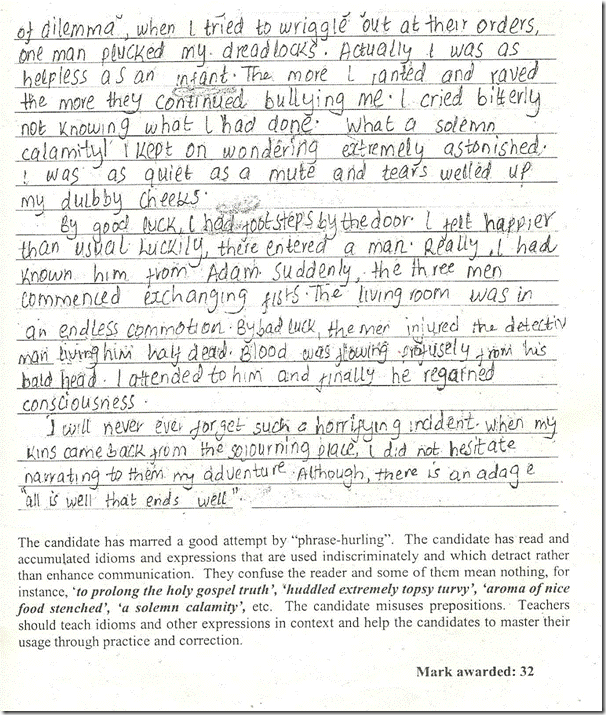 of dilemma", when I tried to wriggle out at their orders,
one man plucked my dreadlocks. Actually I was as
helpless as an infant. The more I ranted and raved
the more they continued bullying me. I cried bitterly
not knowing what I had done. What a solemn
calamity! I kept on wondering extremely astonished.
I was as quiet as a mute and tears welled up
my dulbby cheeks.
By good luck, I had footsteps by the door. I felt happier
than usual Luckily, there entered a man. Really, I had
known him from Adam. Suddenly, the three men
commenced exchanging fists. The living room was in
an endless commotion. By bad luck, the men injured the detectiv
man living him half dead. Blood was flowing profusely from his
bald head. I attended to him and finally he regained
consciousness.
I will never ever forget such a horrifying incident. When my
kins came back from the sojourning place, I did not hesitate
narrating to them my adventure. Although, there is an adage
"all is well that ends well".
The candidate has marred a good attempt by "phrase-hurling". The candidate has read and
accumulated idioms and expressions that are used indiscriminately and which detract rather
than enhance communication. They confuse the reader and some of them mean nothing, for
instance, 'to prolong the holy gospel truth', 'huddled extremely topsy turvy', 'aroma of nice
food stenched', 'a solemn calamity', etc. The candidate misuses prepositions. Teachers
should teach idioms and other expressions in context and help the candidates to master their
usage through practice and correction.
Mark awarded: 32